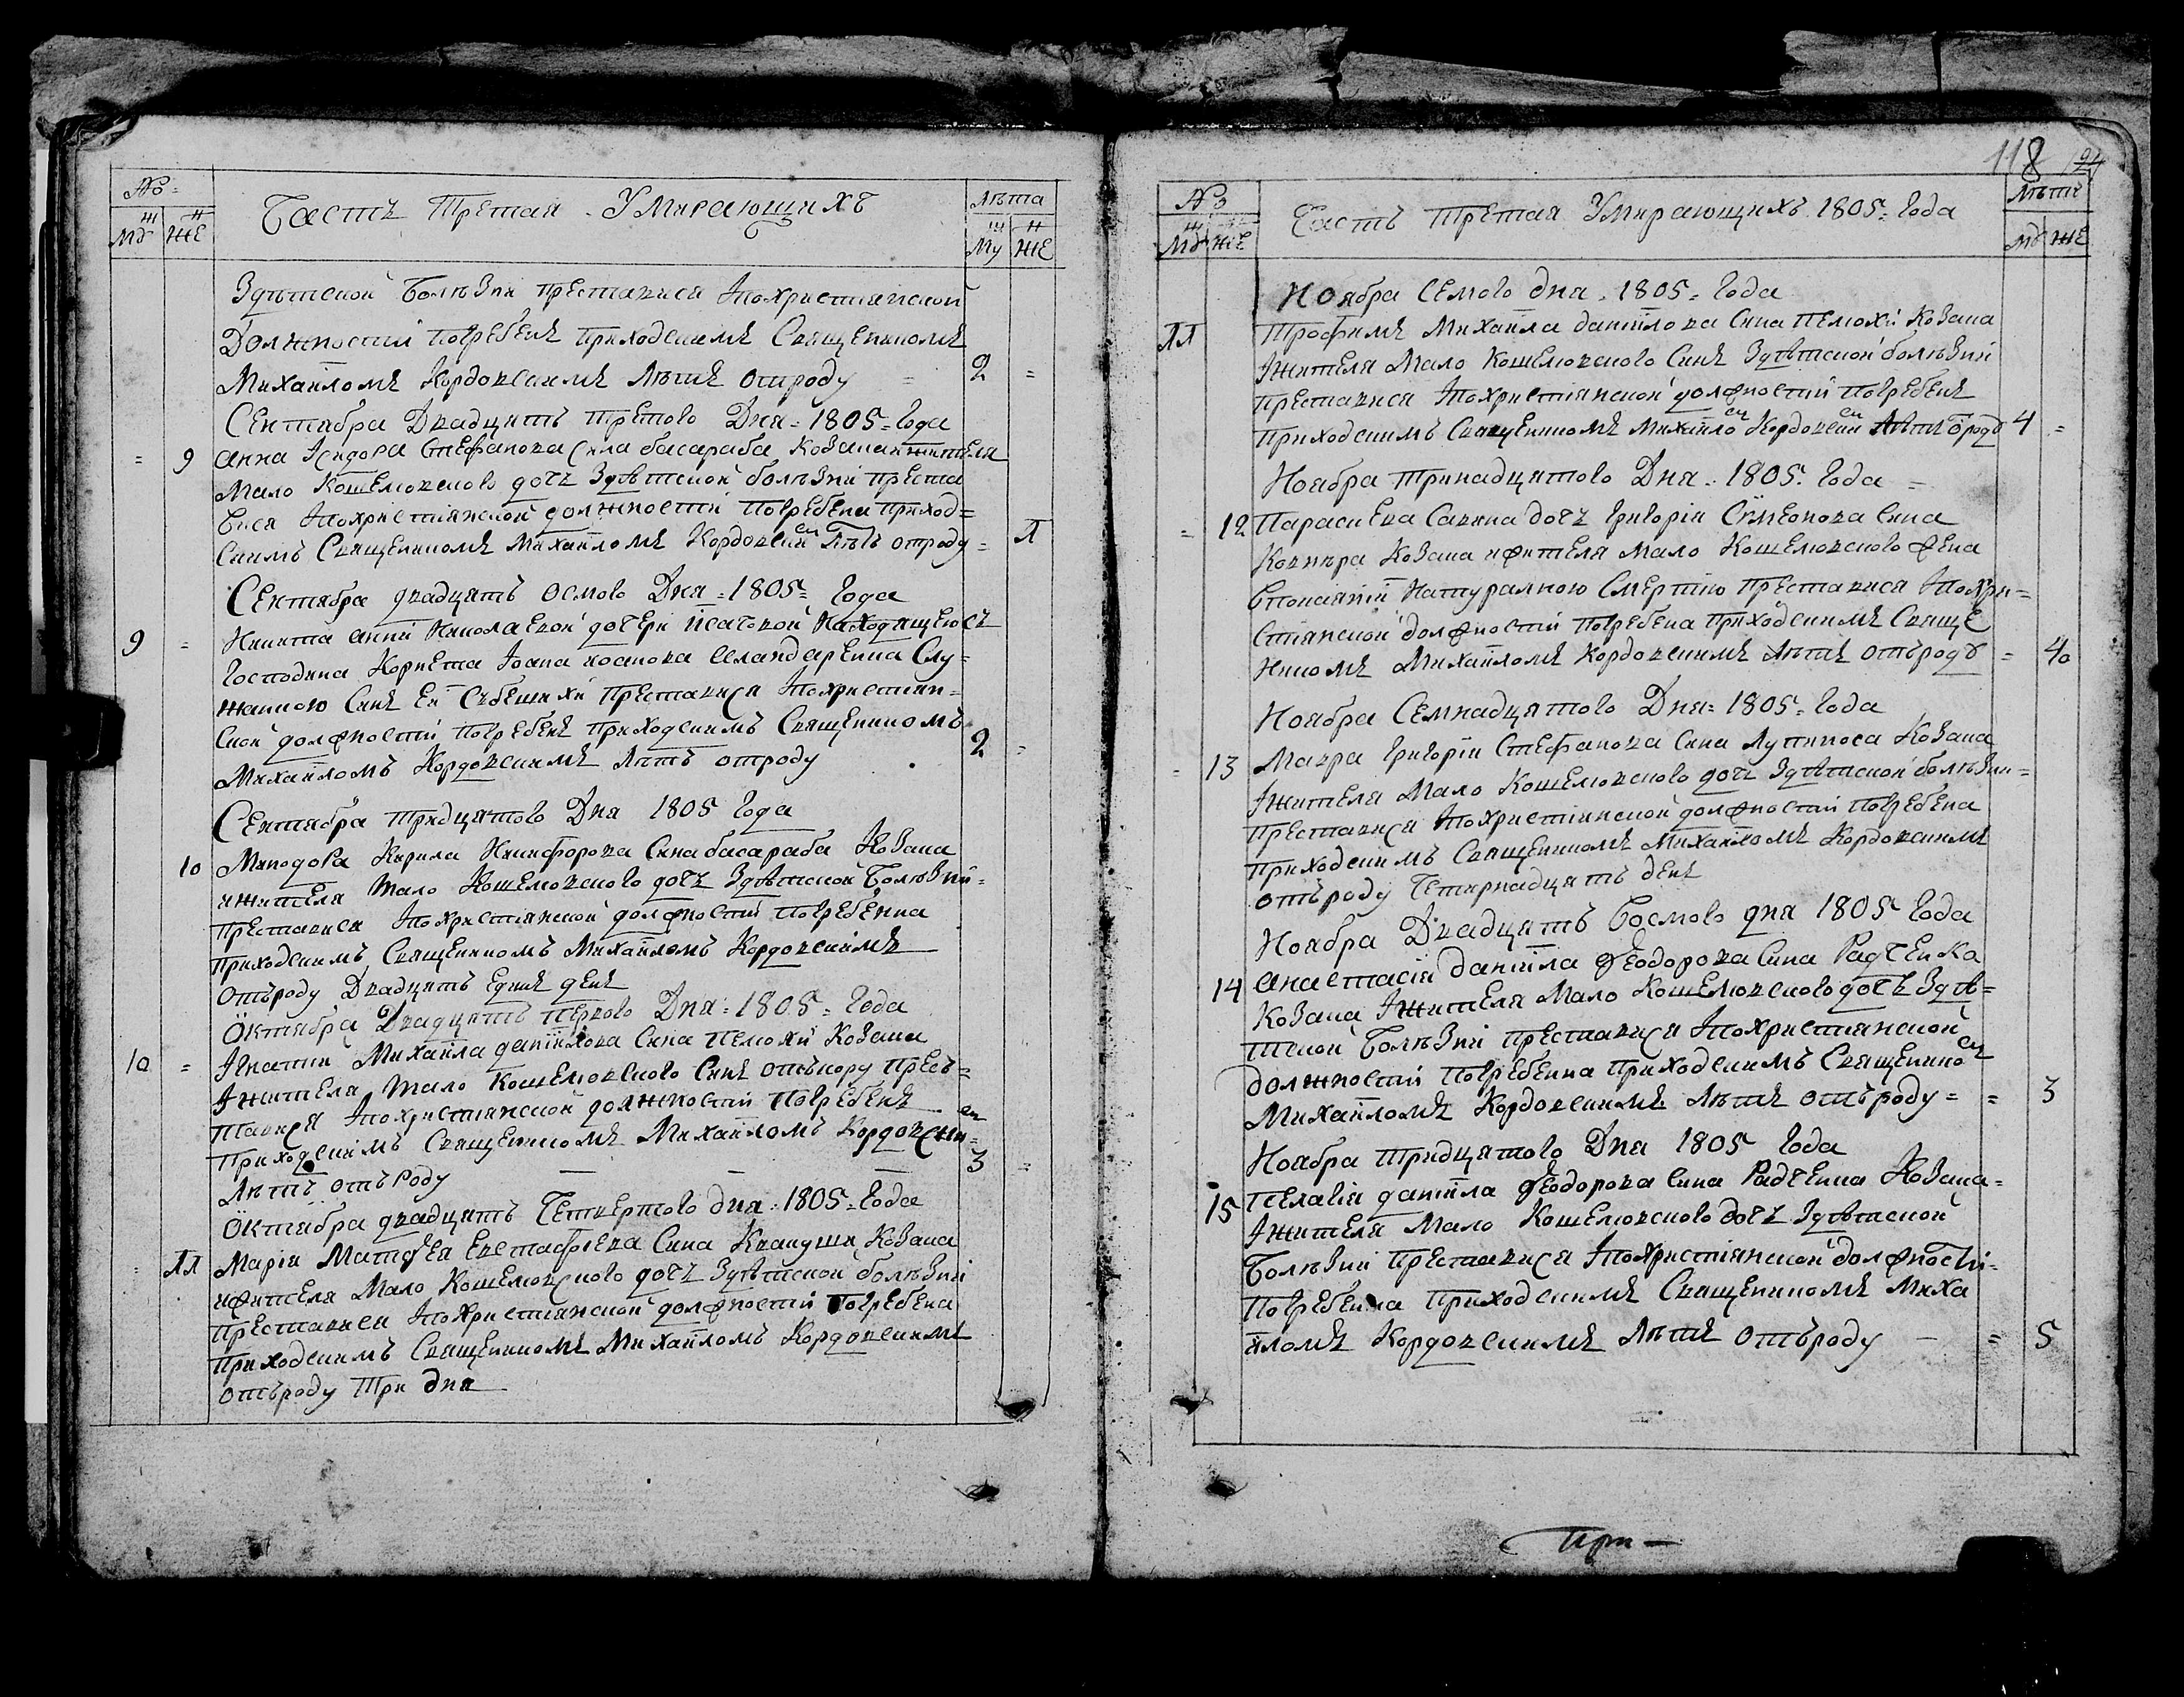 №
муж
жен
Часть Третая Умирающихъ
Лѣта
муж
жен
Здѣтской Болѣзни преставися Ипохристиянской
Должностии погребенъ приходскимъ Священикомъ
Михаиломъ Кордовскимъ лѣтъ отроду = 2 =
Сентабра Двадцять третого Дня = 1805 = Года
= 9 анна Ісидора Стефанова Сина басараба козака жителя
Мало Кошелювского дочъ Здѣтской болѣзни преста
вися Ипохристиянской должностии погребена приход=
скимъ Священикомъ Михаиломъ Кордовским лѣтъ отроду = 1
Сентября двадцять осмого Дня = 1805 = Года
9 = Никита анни Николаевой дочери находящеюсъ
Господина Корнета Іоана Слу=
жанкою Синъ Ея преставися Ипохристиян=
ской должностии погребенъ приходскимъ Священикомъ
Михаиломъ Кордовскимъ лѣтъ отроду 2 =
Сентября тридцятого Дня 1805 Года
10 Минодора Кирила Никифорова Сина басараба Козака
ижителя Мало Кошелювского дочъ Здѣтской Болѣзни=
преставися Ипохристиянской должностии погребенна
приходскимъ Священикомъ Михаиломъ Кордовскимъ
отъроду Двадцять единъ денъ
Октября Двадцять первого Дня = 1805 = Года
10 = Игнатий Михаила даниилова Сина пелюхи Козака
Ижителя Мало Кошелювского Синъ отъкору прес=
тавися Ипохристиянской должностии погребенъ
приходскимъ Священикомъ Михаиломъ Кордовским
Лѣтъ отъроду — — — 3 =
Октября двадцять Четвертого дня = 1805 = Года
= 11 Мария Матфея Евстафиева Сина Квакуши Козака
ижителя Мало Кошелювского дочъ Здѣтской болѣзни
преставися Ипохристиянской должностии погребена
приходскимъ Священикомъ Михаиломъ Кордовскимъ
отъроду Три дня
118
№
муж
жен
Часть третая Умирающихъ 1805 = Года
Лѣтъ
муж
жен
Ноября Семого дня = 1805 = Года
11 Трофимъ Михаила даниилова Сина пелюхи Козака
Ижителя Мало Кошелювского Синъ Здѣтской болѣзни
преставися Ипохристиянской должностии погребенъ
приходскимъ Священикомъ Михаило Кордовским лѣтъ ѿроду 4 =
Ноября тринадцятого Дня = 1805 Года =
= 12 Параскева Савина дочъ Григория Симеонова Сина
Козака ижителя Мало Кошелювского жена
Спокаянии Натуралною Смертию преставися Ипохри=
стиянской должностии погребена приходскимъ Свяще
никомъ Михаиломъ Кордовскимъ лѣтъ отъроду = 40
Ноября Семнадцятого Дня = 1805 = Года
= 13 Мавра Григория Стефанова Сина Козака
Ижителя Мало Кошелювского дочъ Здѣтской болѣзни=
преставися Ипохристиянской должностии погребена
приходскимъ Священикомъ Михаиломъ Кордовскимъ
отъроду Четирнадцять денъ
Ноября Двадцять Восмого дня 1805 Года
14 Анастасия даниила Феодорова Сина Радченка
Козака Ижителя Мало Кошелювского дочъ Здѣ=
тской Болѣзни преставися Ипохристиянской
должностии погребенна приходскимъ Священико
Михаиломъ Кордовскимъ лѣтъ отъроду = = 3
Ноября тридцятого Дня 1805 Года
15 Пелагия даниила Феодорова Сина Радченка Козака=
Ижителя Мало Кошелювского дочъ Здѣтской
Болѣзни преставися Ипохристиянской должности=
погребенна приходскимъ Священикомъ Миха
иломъ Кордовскимъ лѣтъ отъроду — = 5
При —